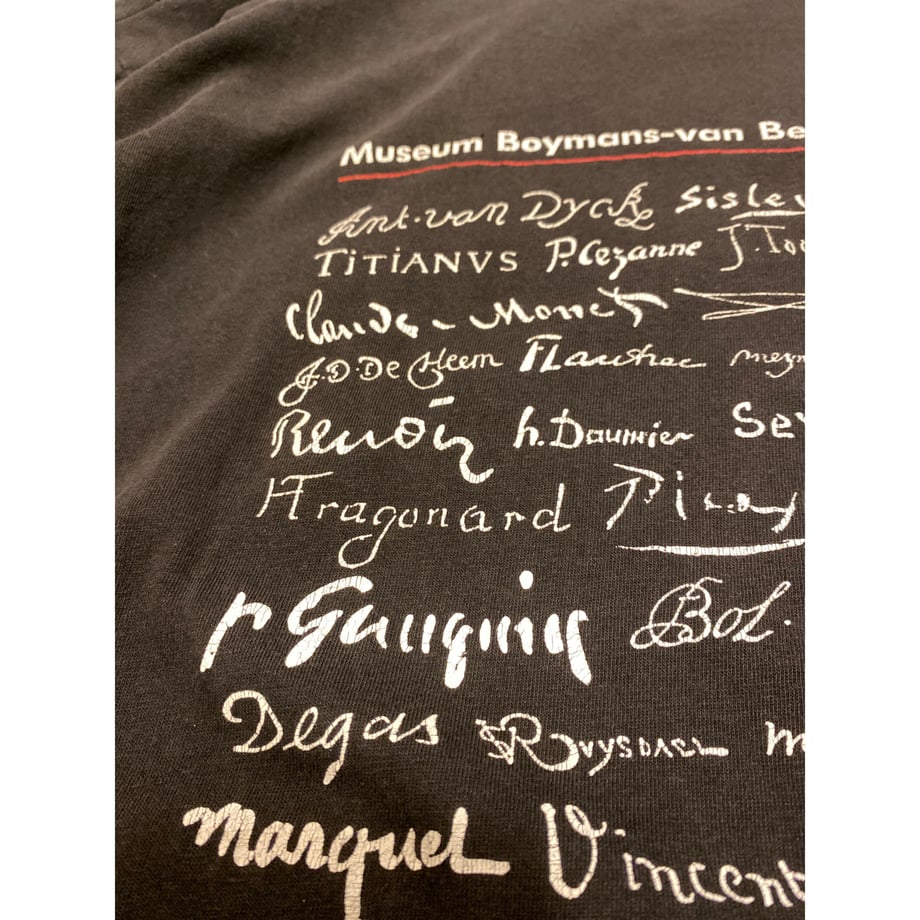 Museum Boymans-van Be
Ant. van Dyck Sisley
TiTiANVS P. Cezanne J. Too
Claude Monet
J.D. De Heem
Renoir h. Daumier Se
Fragonard
P Gauguin Bol.
Degas Ruysdael m
marquet Vincent